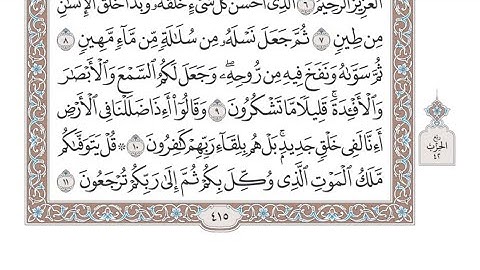 ٱلْعَزِيزُ ٱلرَّحِيمُ ٦ ٱلَّذِىٓ أَحْسَنَ كُلَّ شَىْءٍ خَلَقَهُۥ وَبَدَأَ خَلْقَ ٱلْإِنسَٰنِ
مِن طِينٍ ٧ ثُمَّ جَعَلَ نَسْلَهُۥ مِن سُلَٰلَةٍ مِّن مَّآءٍ مَّهِينٍ ٨
ثُمَّ سَوَّىٰهُ وَنَفَخَ فِيهِ مِن رُّوحِهِۦ وَجَعَلَ لَكُمُ ٱلسَّمْعَ وَٱلْأَبْصَٰرَ
وَٱلْأَفْـِٔدَةَ قَلِيلًا مَّا تَشْكُرُونَ ٩ وَقَالُوٓا۟ أَءِذَا ضَلَلْنَا فِى ٱلْأَرْضِ
أَءِنَّا لَفِى خَلْقٍ جَدِيدٍۭ بَلْ هُم بِلِقَآءِ رَبِّهِمْ كَٰفِرُونَ ١٠ ۞ قُلْ يَتَوَفَّىٰكُم
مَّلَكُ ٱلْمَوْتِ ٱلَّذِى وُكِّلَ بِكُمْ ثُمَّ إِلَىٰ رَبِّكُمْ تُرْجَعُونَ ١١
ربع
الحزب
٤٢
٤١٥